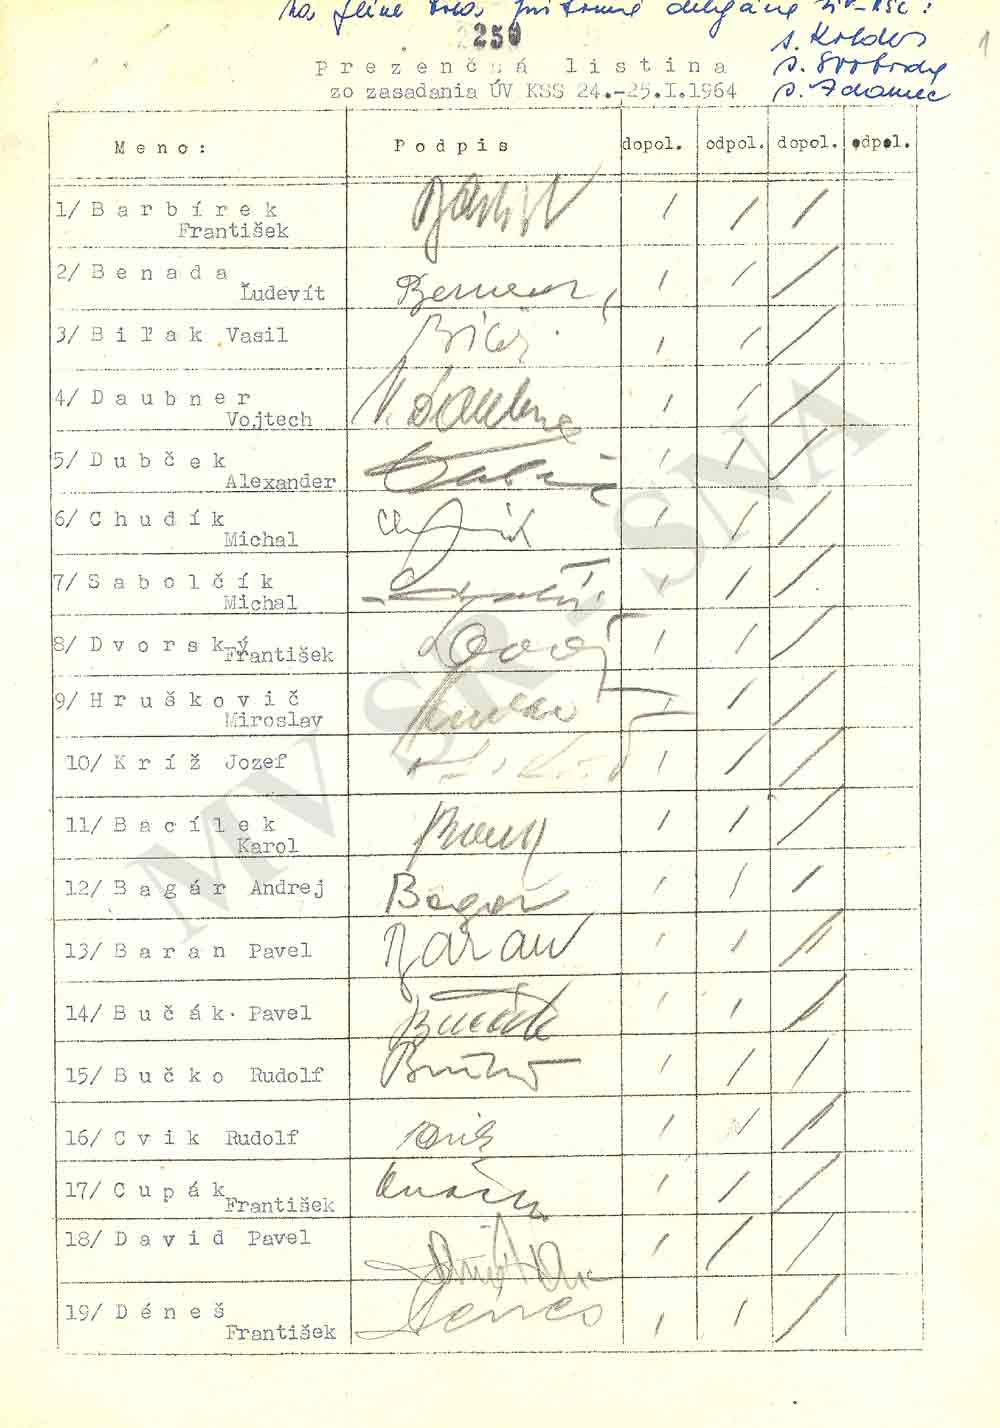 250
1
s. Kolder
s. Svoboda
s. Adamec
Prezenčná listina
zo zasadania ÚV KSS 24.-25.I.1964
Meno: Podpis dopol. odpol. dopol. odpol.
1/ Barbírek
František
2/ Benada
Ľudevít
3/ Biľak Vasil
4/ Daubner
Vojtech
5/ Dubček
Alexander
6/ Chudík
Michal
7/ Sabolčík
Michal
8/ Dvorský
František
9/ Hruškovič
Miroslav
10/ Kríž Jozef
11/ Bacílek
Karol
12/ Bagár Andrej
Bagar
13/ Baran Pavel
Baran
14/ Bučák Pavel
15/ Bučko Rudolf
16/ Cvik Rudolf
17/ Cupák
František
18/ David Pavel
19/ Déneš
František
Déneš
MV SR - SNA